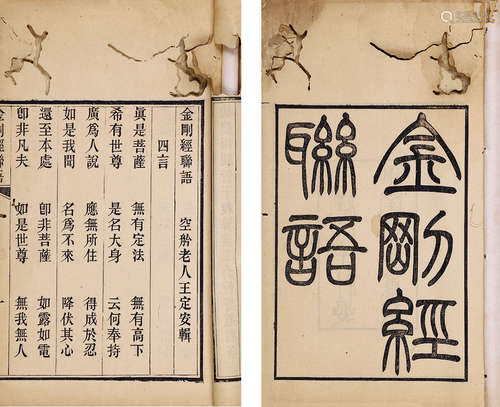 金剛經
聯語
金剛經聯語 空舲老人王定安輯
四言
眞是菩薩 無有定法 無有高下
希有世尊 是名大身 云何奉持
廣爲人說 應無所住 得成於忍
如是我聞 名爲不來 降伏其心
還至本處 卽非菩薩 如露如電
卽非凡夫 如是世尊 無我無人
金剛經聯語